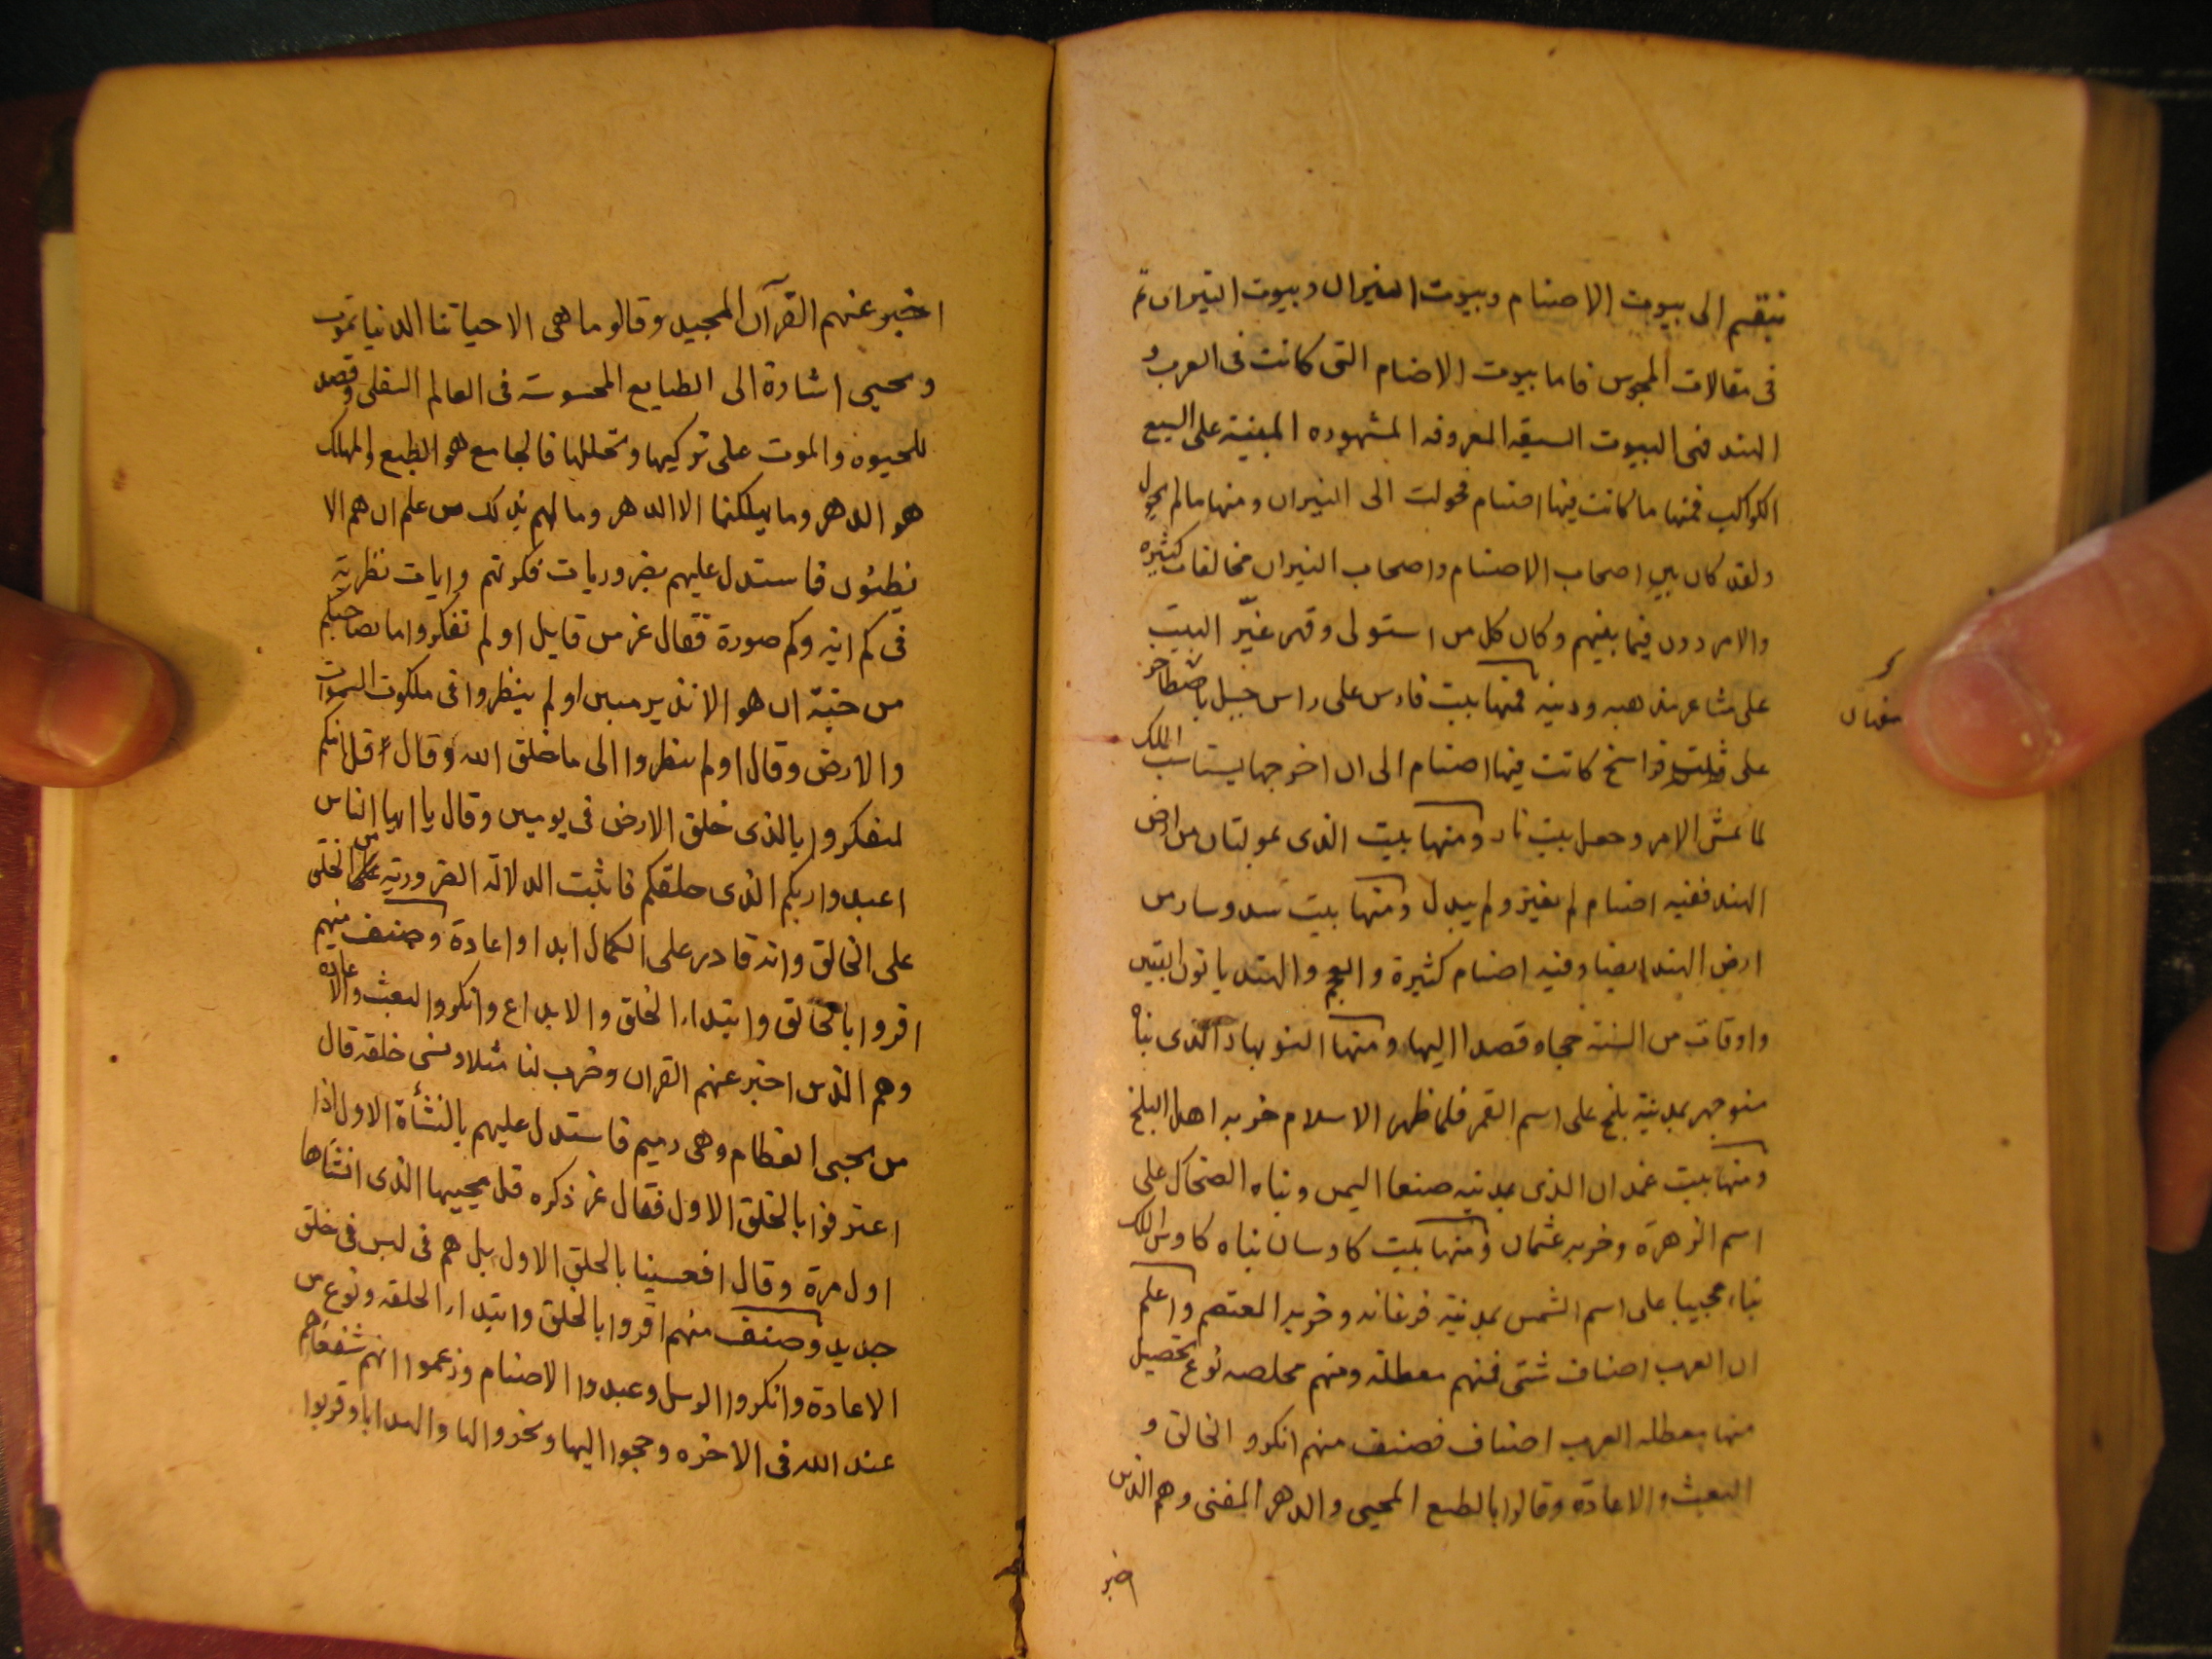 تنقسم الى بيوت الاصنام وبيوت النيران وبيوت النيران ثم
فى مقالات المجوس فاما بيوت الاصنام التى كانت فى العرب و
الهند فهى البيوت السبعة المعروفه المشهوره المبنية على السبع
الكواكب فمنها ما كانت فيها اصنام فحولت الى النيران ومنها ما لم يحول
ولقد كان بين اصحاب الاصنام واصحاب النيران مخالفات كثيره
والامر دون فيما بينهم وكان كل من استولى وقهر غيّر البيت
على مشاعر مذهبه ودينه فمنها بيت فارس على راس جبل باصفهان
على ثلث فراسخ كانت فيها اصنام الى ان اخرجها يستاسب الملك
لما الامر وجعل بيت نار ومنها بيت الذى بمولتان من ارض
الهند ففيه اصنام لم تغير ولم يبدل ومنها بيت سدوسار من
ارض الهند ايضا وفيه اصنام كثيرة والعجم والهند ياتون البيتين
واوقات من السنة حجا وقصدا اليها ومنها النوبهار الذى بناه
منوجهر بمدينة بلخ على اسم القمر فلما ظهر الاسلام خربه اهل البلخ
ومنها بيت غمدان الذى بمدينه صنعا اليمن وبناه الضحاك على
اسم الزهرة وخربه عثمان ومنها بيت كاوسان بناه كاوس الملك
بناء عجيبا على اسم الشمس بمدينة فرغانه وخربه المعتصم واعلم
ان العرب اصناف شتى فمنهم معطلة ومنهم محلصه نوع تحصيل
منها معطله العرب اصناف فصنف منهم انكروا الخالق و
البعث والاعادة وقالوا بالطبع المحيى والدهر المفنى وهم الذين
اخبر
اخبر عنهم القرآن المجيد وقالو ما هى الا حياتنا الدنيا نموت
ونحيى اشارة الى الطبايع المحسوسة فى العالم السفلى وقصد
للحيوه والموت على تركيبها وتحللها فالجامع هو الطبع والمهلك
هو الدهر وما يهلكنا الا الدهر وما لهم بذلك من علم ان هم الا
يظنون فاستدل عليهم بضروريات فكرية وايات نظرية
فى كم اية وكم صورة فقال عز من قايل اولم تفكروا ما بصاحبكم
من جنة ان هو الا نذير مبين اولم ينظروا فى ملكوت السموات
والارض وقال اولم ينظروا الى ما خلق الله وقال قل ائنكم
لتكفروا بالذى خلق الارض فى يومين وقال يا ايها الناس
اعبدوا ربكم الذى خلقكم فاثبت الدلالة الضرورية من الخلق
على الخالق وانه قادر على الكمال ابدا واعادة وصنف منهم
اقروا بالخالق وابتداء الخلق والابداع وانكروا البعث والاعادة
وهم الذين اخبر عنهم القران وضرب لنا مثلا ونسى خلقه قال
من يحيى العظام وهى رميم فاستدل عليهم بالنشأة الاول اذا
اعترفوا بالخلق الاول فقال عز ذكره قل يحييها الذى انشأها
اول مرة وقال افعيينا بالخلق الاول بل هم فى لبس فى خلق
جديد وصنف منهم اقروا بالخلق وابتداء الخلقه ونوع من
الاعادة وانكروا الرسل وعبدوا الاصنام وزعموا انهم شفعاهم
عند الله فى الاخره وحجوا اليها ونحروا لها والهدايا وقربوا